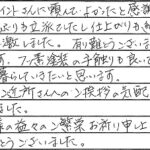 イントさんに頼んでよかったと感謝
ぶりも立派でしたし仕上がりも
激しました。有り難うございま
す。万全塗装の手触りも良いて
暮らしていきたいと思います。
ご近所さんへのご挨拶の気配
ました。
の益々のご繁栄お祈り申し上
とうございました。